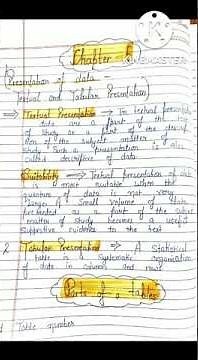 Chapter 5
Presentation of data -
Textual and Tabular Presentation
⇒ Textual Presentation → In textual presentation
data are a part of the
of study or a part of the
of the subject matter of
study. Such a presentation is also
called descriptive of data.
Suitability → Textual presentation of data
is most suitable when the
quantum of data is not very
larger. A small volume of data
presented as a part of the subject
matter of study becomes a useful
supportive evidence to the text
2 Tabular Presentation → A statistical
table is a systematic organisation
of data in columns and rows
Parts of a table
Table number